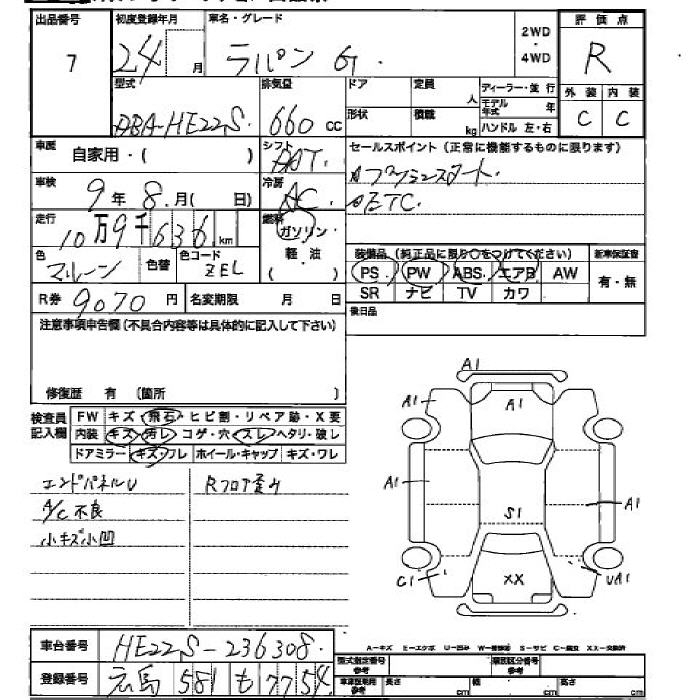 出品番号 初度登録年月 車名・グレード 2WD ・ 4WD 評価点
7 24 月 ラパン G R
型式 排気量 ドア 定員 人 ディーラー・並行 外装 内装
DBA-HE22S 660 cc 形状 積載 kg モデル年式 年 C C
ハンドル 左・右
車歴 自家用・( ) シフト AT セールスポイント(正常に機能するものに限ります)
車検 9年 8月( 日) 冷房 AC プッシュスタート
ETC
走行 10万9千636km 燃料 ガソリン・軽・油 ( )
色 マルーン 色替 色コード ZEL
装備品(純正品に限り○をつけてください) 新車保証書
PS PW ABS エアB AW 有・無
SR ナビ TV カワ
R券 9070円 名変期限 月 日 後日品
注意事項申告欄(不具合内容等は具体的に記入して下さい)
修復歴 有 〔箇所 〕
検査員記入欄 FW キズ・飛石・ヒビ割・リペア跡・X要
内装 キズ・汚レ・コゲ・穴・スレ・ヘタリ・破レ
ドアミラー キズ・ワレ ホイール・キャップ キズ・ワレ
エンドパネルU Rフロア歪み
A/C不良
小キズ小凹
A1
A1 A1
A1 A1
S1
G1 XX UA1
A-キズ E-エクボ U-凹み W-補修跡 S-サビ C-腐食 XX-交換済
車台番号 HE22S-236308
登録番号 広島 581 も 7754
型式指定番号 参考 類別区分番号 参考
車体証記載用 参考 長さ cm 幅 cm 高さ cm